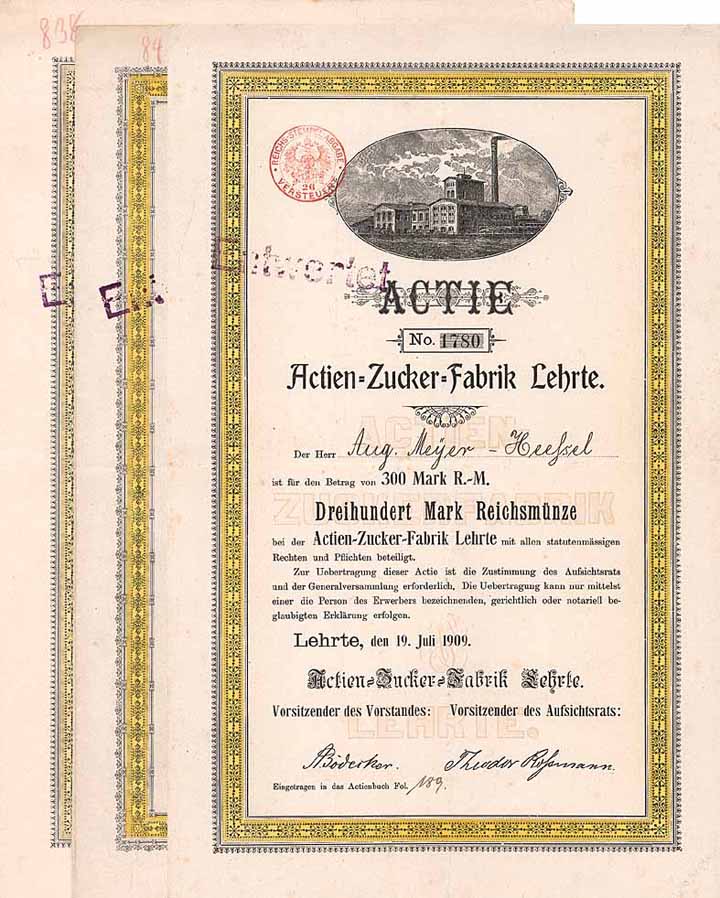 838
84
REICHS-STEMPEL-ABGABE
26
VERSTEUERT
E
En
Entwertet
ACTIE
No. 1780
Actien=Zucker=Fabrik Lehrte.
Der Herr Aug. Meÿer - Heeßel
ist für den Betrag von 300 Mark R.-M.
Dreihundert Mark Reichsmünze
bei der Actien-Zucker-Fabrik Lehrte mit allen statutenmässigen
Rechten und Pflichten beteiligt.
Zur Uebertragung dieser Actie ist die Zustimmung des Aufsichtsrats
und der Generalversammlung erforderlich. Die Uebertragung kann nur mittelst
einer die Person des Erwerbers bezeichnenden, gerichtlich oder notariell be-
glaubigten Erklärung erfolgen.
Lehrte, den 19. Juli 1909.
Actien=Zucker=Fabrik Lehrte.
Vorsitzender des Vorstandes: Vorsitzender des Aufsichtsrats:
ABödecker. Theodor Roßmann.
Eingetragen in das Actienbuch Fol. 189.
ACTIEN
ZUCKERFABRIK
LEHRTE.